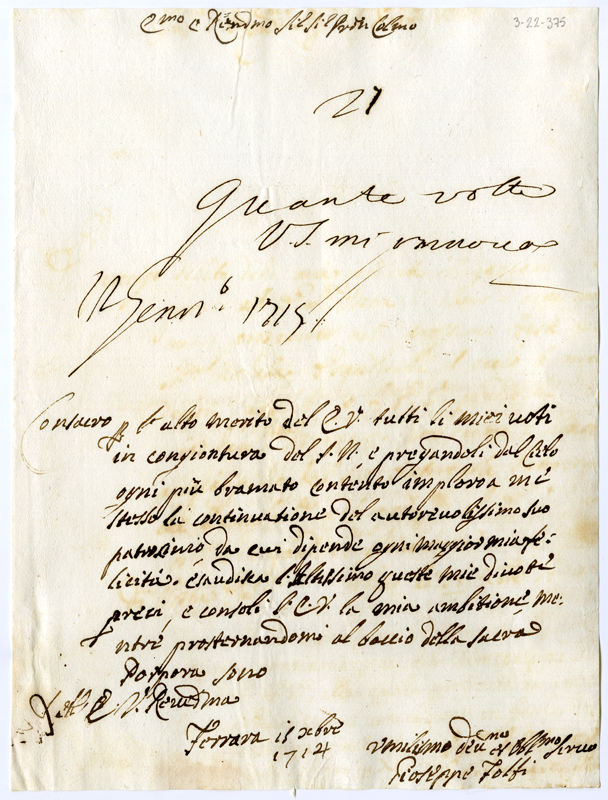 E.mo e Reuerdmo Sig. Sig. Pron Colmo
3-22-375
21
Quante volte
V.S. mi rinnoua
12 Genn.o 1715.
Consacro l'alto merito del E.V. tutti li miei uoti
in congiontura del S.N. e pregandoli dal Cielo
ogni più bramato contento imploro a me
stesso la continuatione del autoreuolissimo suo
patrocinio da cui dipende ogni maggior mia fe-
licità. esaudisca l'Altissimo queste mie diuote
preci, e consoli l'E.V. la mia ambitione me-
ntre prosternandomi al baccio della sacra
Porpora sono
E. V. Reuerdma
Ferrara 15 xbre
1714
umilissmo deu.mo et obb.mo seruo
Gioseppe Tolfi